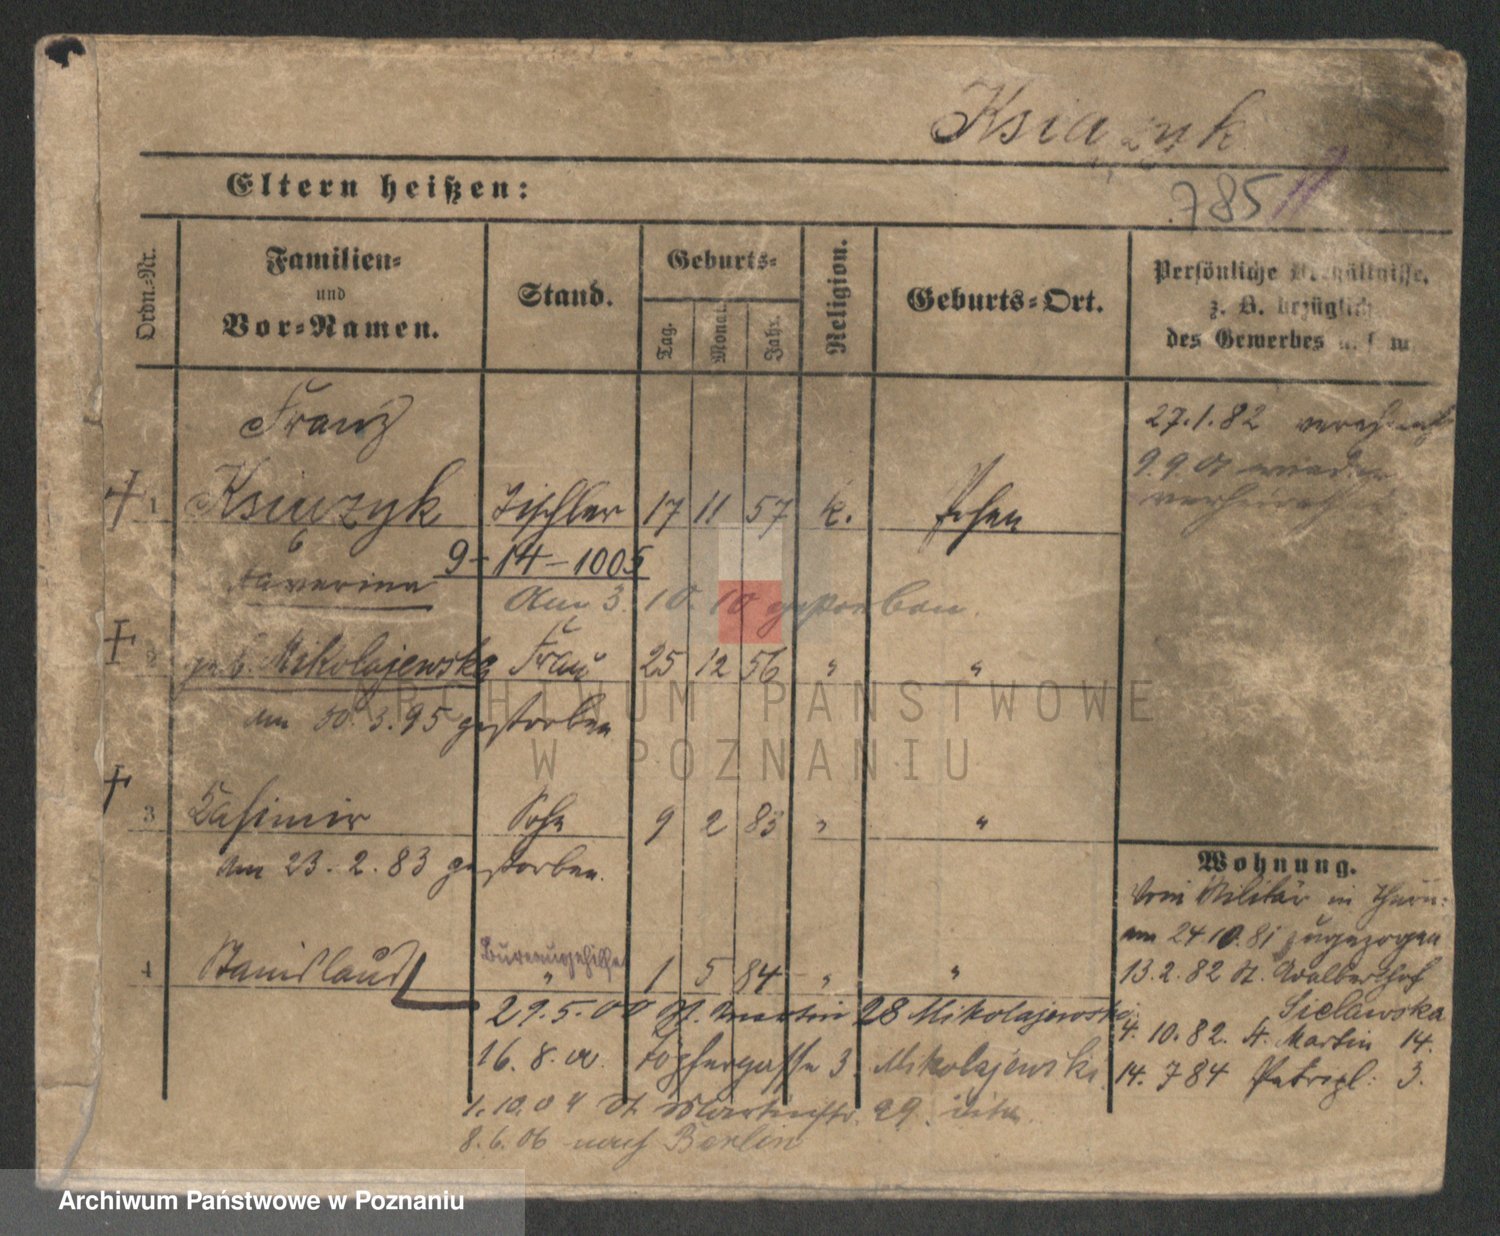 Ksiązyk
Eltern heißen:
785
Ordn.-Nr.
Familien-
und
Vor-Namen.
Stand.
Geburts-
Tag.
Monat.
Jahr.
Religion.
Geburts-Ort.
Persönliche Verhältnisse,
z. B. bezüglich
des Gewerbes u. s. w.
Franz
27.1.82
9.9.01 wieder
verheirathet
1 Ksiązyk Tischler 17 11 57 k. Posen
9-14-1005
Xaverina
Am 3. 10. 10 gestorben.
2 geb. Mikolajewska Frau 25 12 56 " "
am 30.3.95 gestorben
3 Casimir Sohn 9 2 83 " "
am 23.2.83 gestorben.
Wohnung.
Vom Militär in Thorn
am 24.10.81 zugezogen
4 Stanislaus Bureaugehilfe " 1 5 84 " "
13.2.82 St. Adalberthof
Sielawska
29.5.00 St. Martin 28 Mikolajewski
4.10.82. St. Martin 14.
16.8.00. Töpfergasse 3 Mikolajewski
14.784 Petripl: 3.
1.10.04 St Martinstr. 29.
8.6.06 nach Berlin
ARCHIWUM PAŃSTWOWE
W POZNANIU
Archiwum Państwowe w Poznaniu